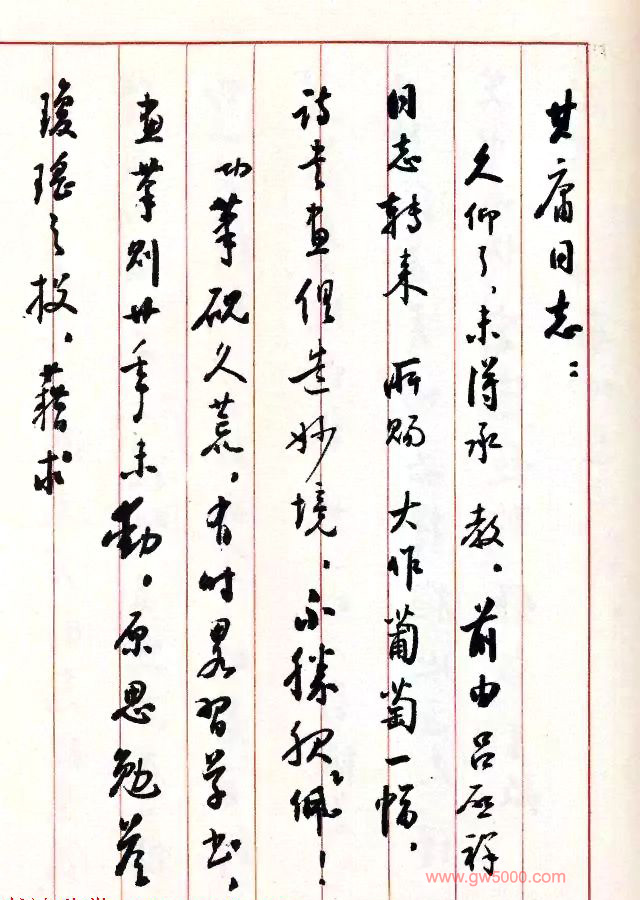 其庸同志：
久仰了，未得承 教。前由吕启祥
同志转来 所赐 大作葡萄一幅，
诗书画俱造妙境，不胜钦佩！
功笔砚久荒，有时略习学书，
画笔则廿年未动，原思勉答
琼瑶之投，藉求
www.gw5000.com